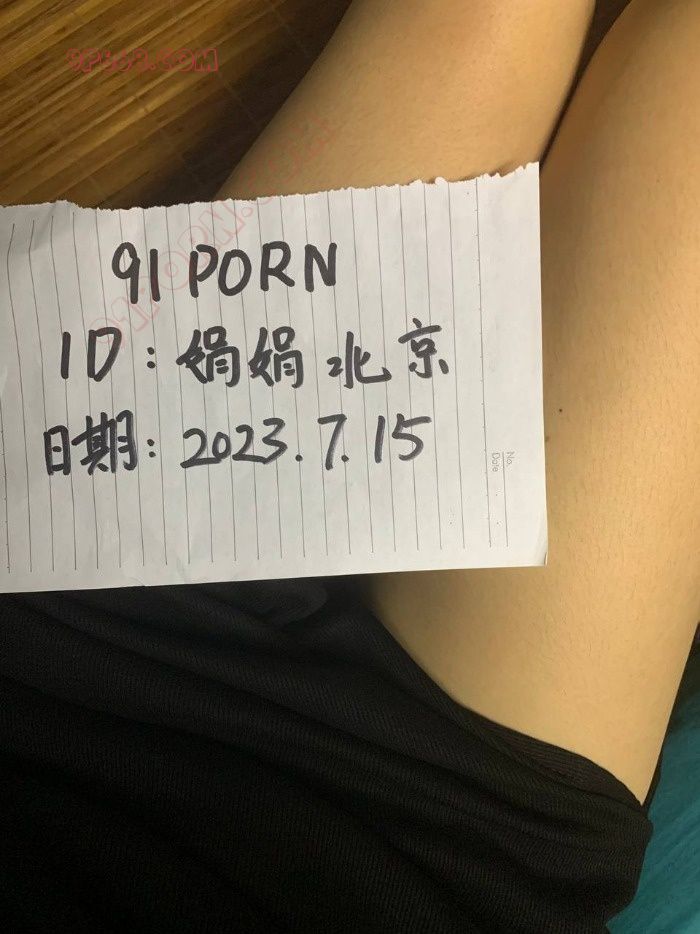 9P568.COM
91PORN.COM
91 PORN
ID: 娟娟北京
日期: 2023.7.15
No.
Date